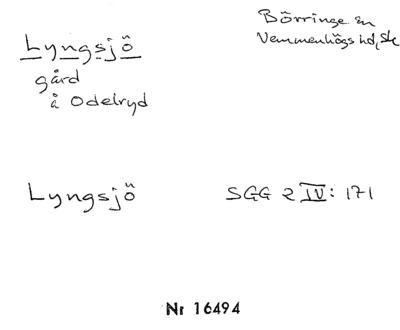 Lyngsjö
Börringe sn
Vemmenhögs hd, Sk
gård
å Odelryd
Lyngsjö
SGG 2 IV: 171
Nr 16494